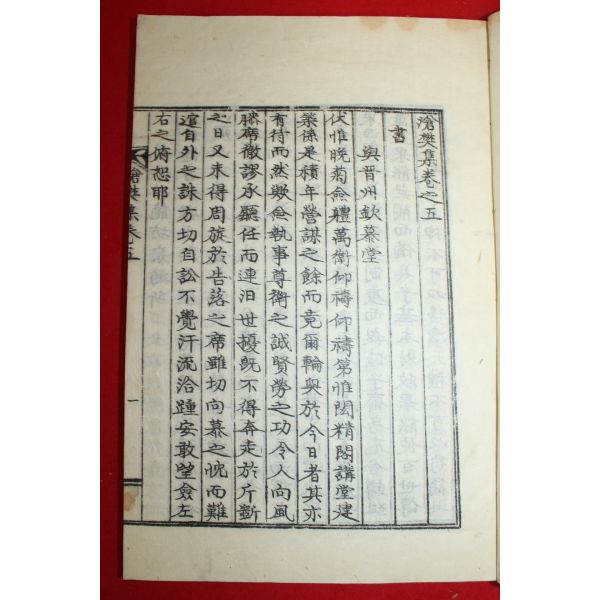 滄樊集卷之五
書
與晋州欽慕堂
伏惟晩菊僉軆萬衛仰禱仰禱第惟閎精閣講堂建
築係是積年營謀之餘而竟爾輪奐於今日者其亦
有待而然歟僉執事尊衛之誠賢勞之功令人向風
勝席徹謬承聽任而連汨世擾旣不得奔走於斤斲
之日又未得周旋於告落之席雖切向慕之忱而難
逭自外之誅方切自訟不覺汗流洽踵安敢望僉左
右之俯恕耶
滄樊集卷五
一